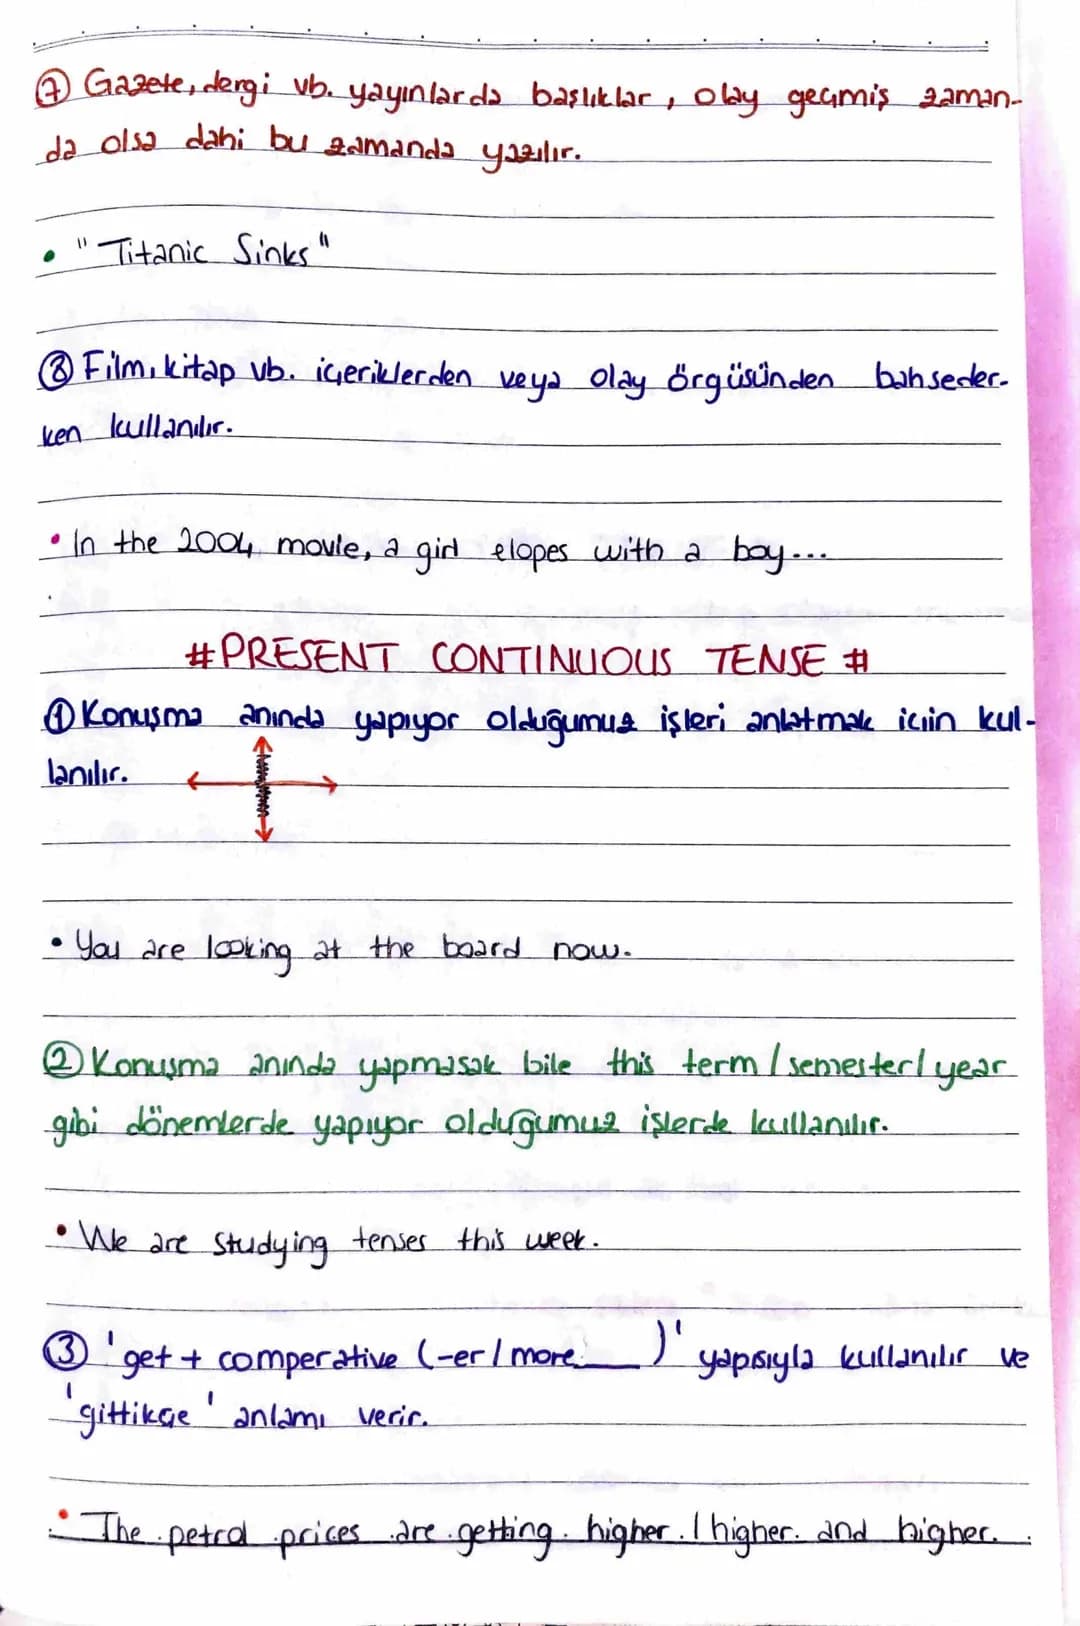 ⑦ Gazete, dergi vb. yayınlarda başlıklar, olay geçmiş zaman-
da olsa dahi bu zamanda yazılır.
• "Titanic Sinks"
⑧ Film, kitap vb. içeriklerden veya olay örgüsünden bahseder-
ken kullanılır.
• In the 2004 movie, a girl elopes with a boy...
#PRESENT CONTINUOUS TENSE #
① Konuşma anında yapıyor olduğumuz işleri anlatmak için kul-
lanılır.
• You are looking at the board now.
② Konuşma anında yapmasak bile this term / semester / year
gibi dönemlerde yapıyor olduğumuz işlerde kullanılır.
• We are studying tenses this week.
③ 'get + comperative (-er / more ___)' yapısıyla kullanılır ve
'gittikçe' anlamı verir.
• The petrol prices are getting higher / higher and higher.